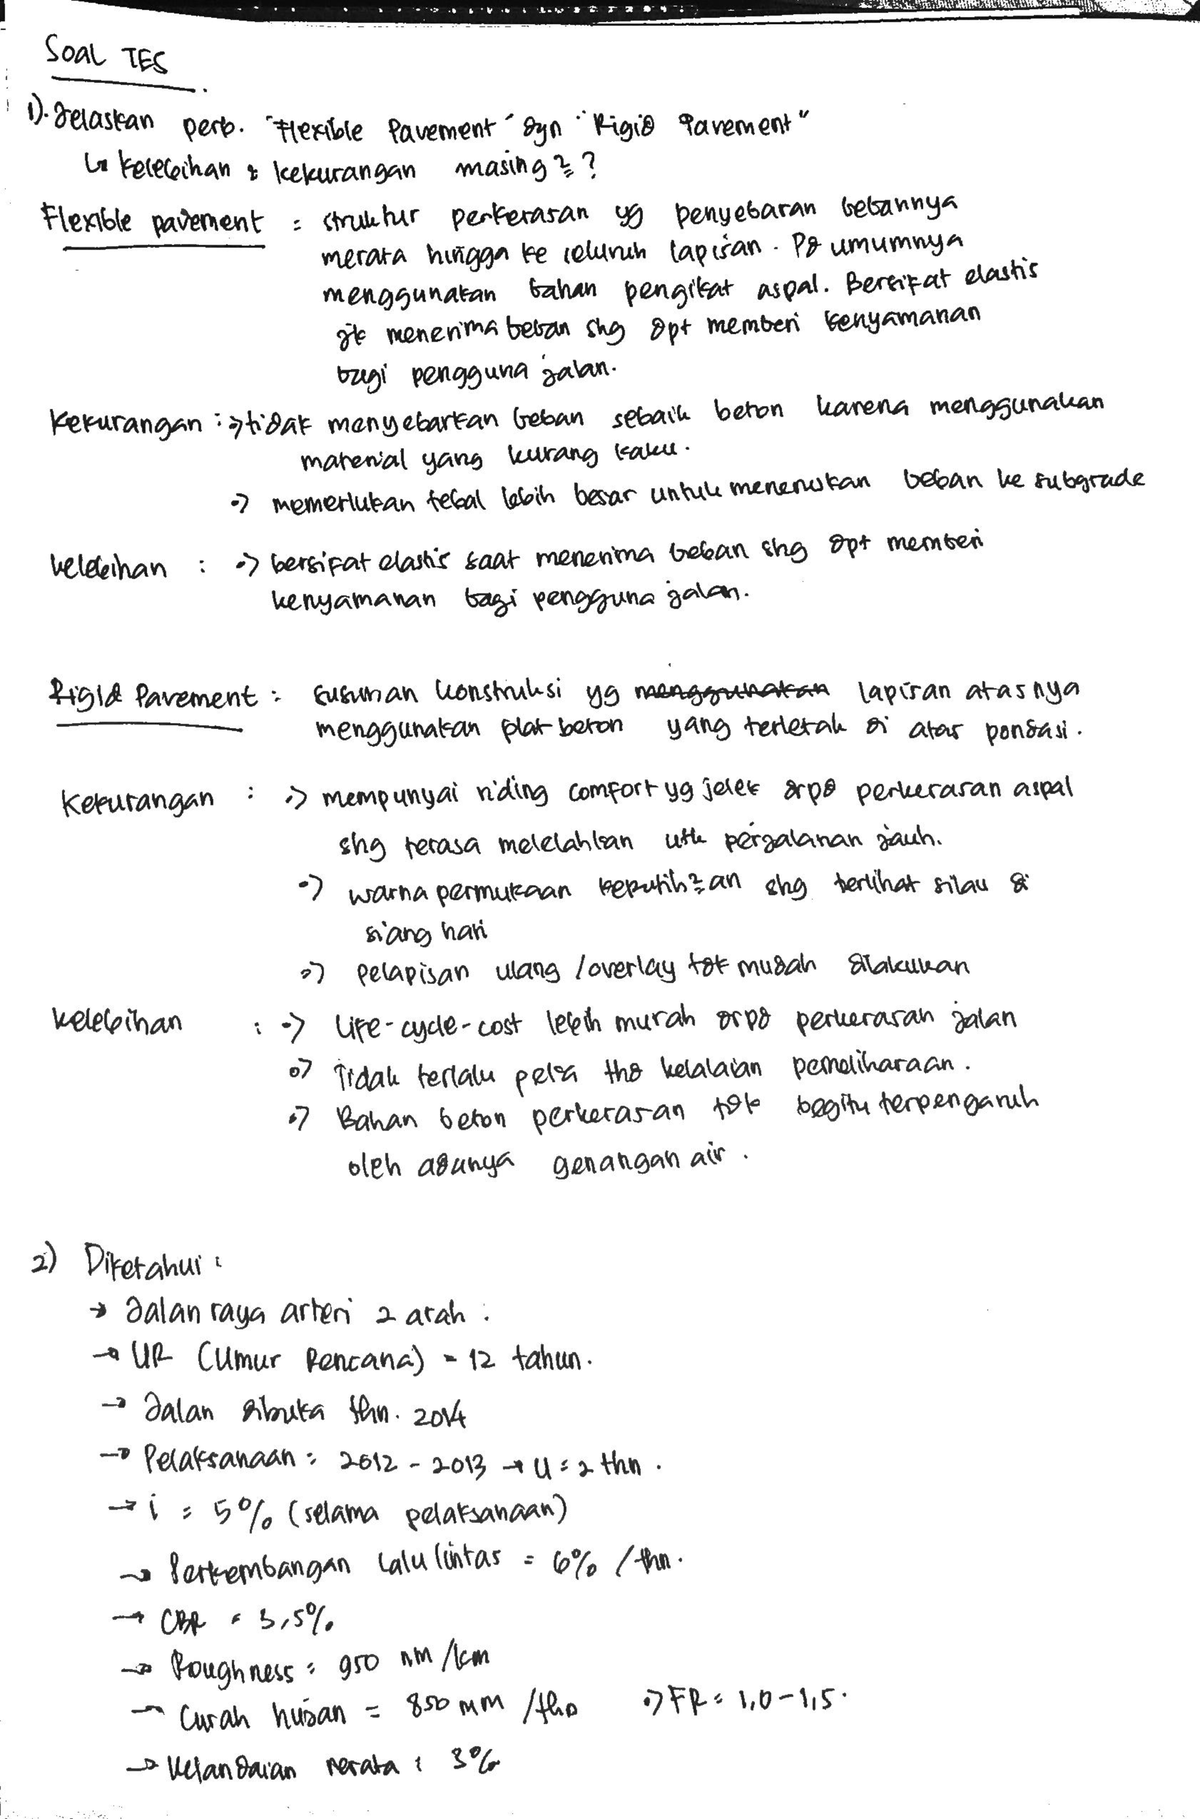 Soal TES
1). Jelaskan perb. "Flexible Pavement" dgn "Rigid Pavement"
↳ kelebihan & kekurangan masing2 ?
Flexible pavement = struktur perkerasan yg penyebaran bebannya
merata hingga ke seluruh lapisan. Pd umumnya
menggunakan bahan pengikat aspal. Bersifat elastis
jk menerima beban shg dpt memberi kenyamanan
bagi pengguna jalan.
Kekurangan : -> tidak menyebarkan beban sebaik beton karena menggunakan
material yang kurang kaku.
-> memerlukan tebal lebih besar untuk meneruskan beban ke subgrade
kelebihan : -> bersifat elastis saat menerima beban shg dpt memberi
kenyamanan bagi pengguna jalan.
Rigid Pavement : susunan konstruksi yg menggunakan lapisan atasnya
menggunakan plat beton yang terletak di atas pondasi.
Kekurangan : -> mempunyai riding comfort yg jelek drpd perkerasan aspal
shg terasa melelahkan utk perjalanan jauh.
-> warna permukaan keputih2an shg terlihat silau di
siang hari
-> pelapisan ulang /overlay tdk mudah dilakukan
kelebihan : -> Life-cycle-cost lebih murah drpd perkerasan jalan
-> Tidak terlalu peka thd kelalaian pemeliharaan.
-> Bahan beton perkerasan tdk begitu terpengaruh
oleh adanya genangan air.
2) Diketahui :
→ Jalan raya arteri 2 arah :
→ UR (Umur Rencana) = 12 tahun.
→ Jalan dibuka thn. 2014
→ Pelaksanaan : 2012 - 2013 → U = 2 thn.
→ i = 5% (selama pelaksanaan)
→ Perkembangan lalu lintas = 6% / thn.
→ CBR = 3,5%
→ Roughness : 950 mm /km
→ Curah hujan = 850 mm /thn -> FR = 1,0 - 1,5.
→ Kelandaian rerata : 3%